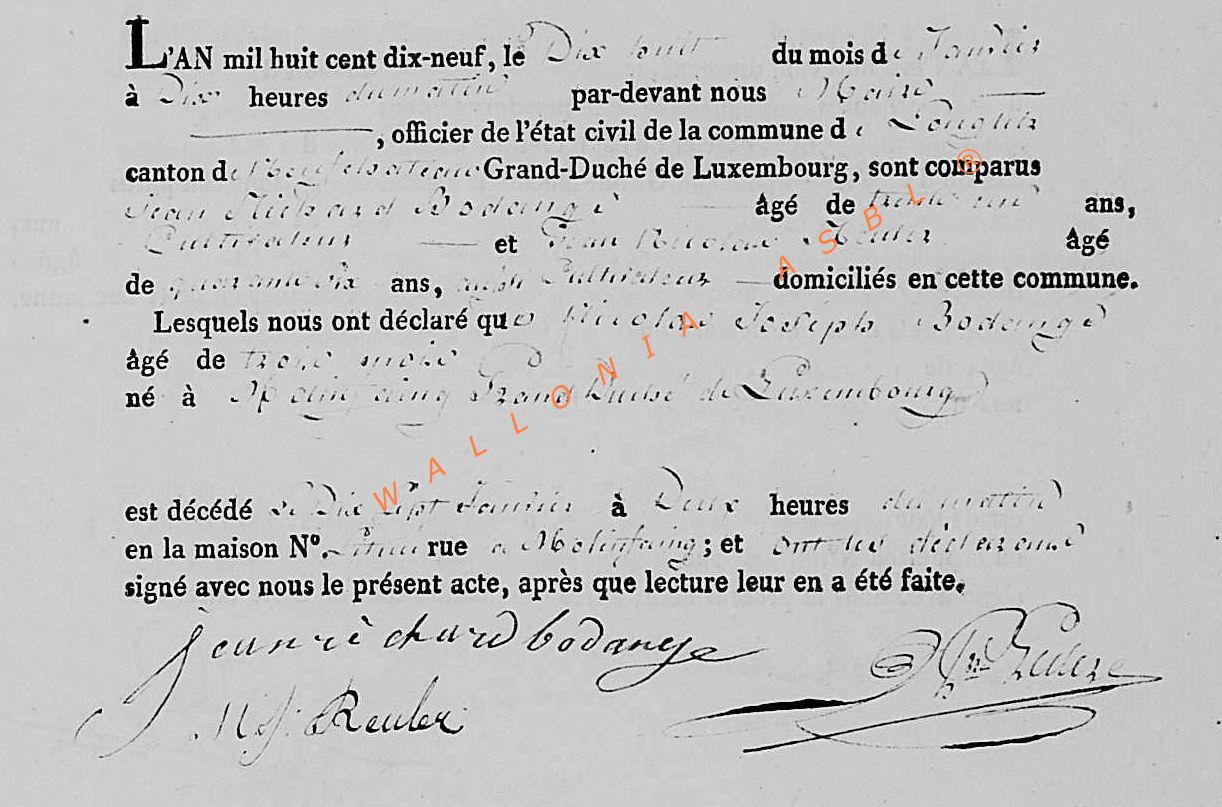 L'AN mil huit cent dix-neuf, le Dix huit du mois de Janvier
à Dix heures du matin par-devant nous Maire
, officier de l'état civil de la commune de Longlier
canton de Neufchateau Grand-Duché de Luxembourg, sont comparus
Jean Richard Bodange âgé de trente ans,
Cultivateur et Jean Nicolas Reuler âgé
de quarante six ans, aussi Cultivateur domiciliés en cette commune.
Lesquels nous ont déclaré que Nicolas Joseph Bodange
âgé de trois mois
né à Molinfaing Grand Duché de Luxembourg
est décédé le Dix sept Janvier à Deux heures du matin
en la maison N°. située rue à Molinfaing; et ont les déclarans
signé avec nous le présent acte, après que lecture leur en a été faite.
jean richard bodange
N J: Reuler
WALLONIA ASBL ®